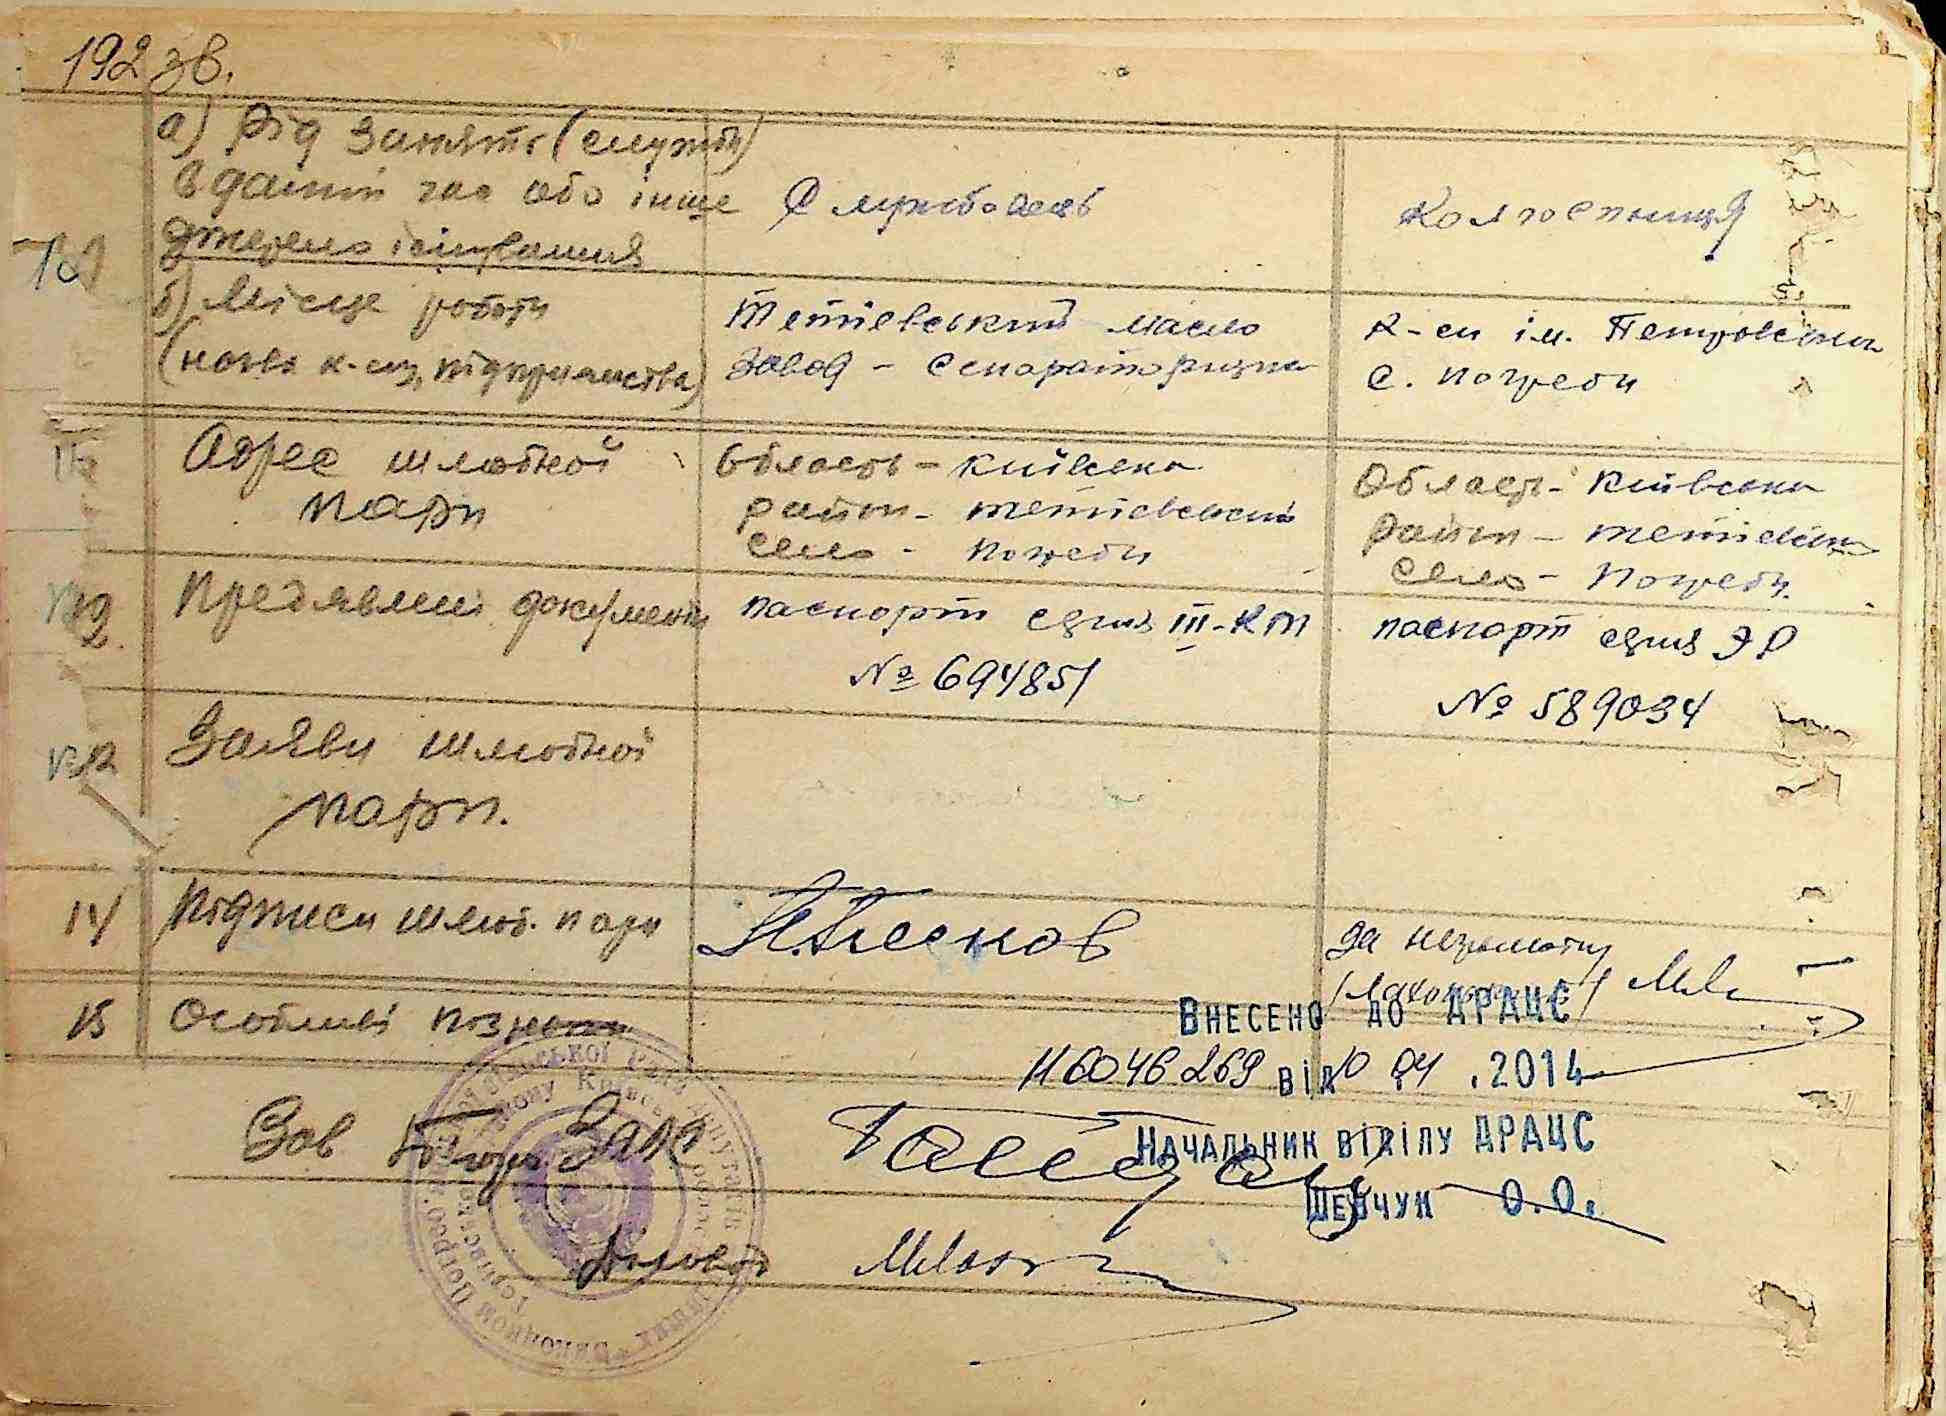 192 зв.
а) Рід занять (служби)
в даний час або інше
джерело існування
Службовець
Колгоспниця
б) Місце роботи
(назва к-спу, підприємства)
Тетієвський масло
завод - Сепараторизна
к-сп ім. Петровська
с. Погреби
Адрес шлюбної
пари
Область - Київська
район - тетієвський
село - Погреби
Область - Київська
район - тетієвськи
село - Погреби.
12.
Предявлені документи
паспорт серия III-КМ
№ 694851
паспорт серия ЭР
№ 589034
Заяви шлюбної
пари.
14
Підписи шлюб. пари
за неграмотну
15
Особливі познаки
Внесено до ДРАЦС
116046269 від 10 04 .2014
Начальник відділу ДРАЦС
Шевчук О.О.
Зав Бюро ЗАГС
Голова